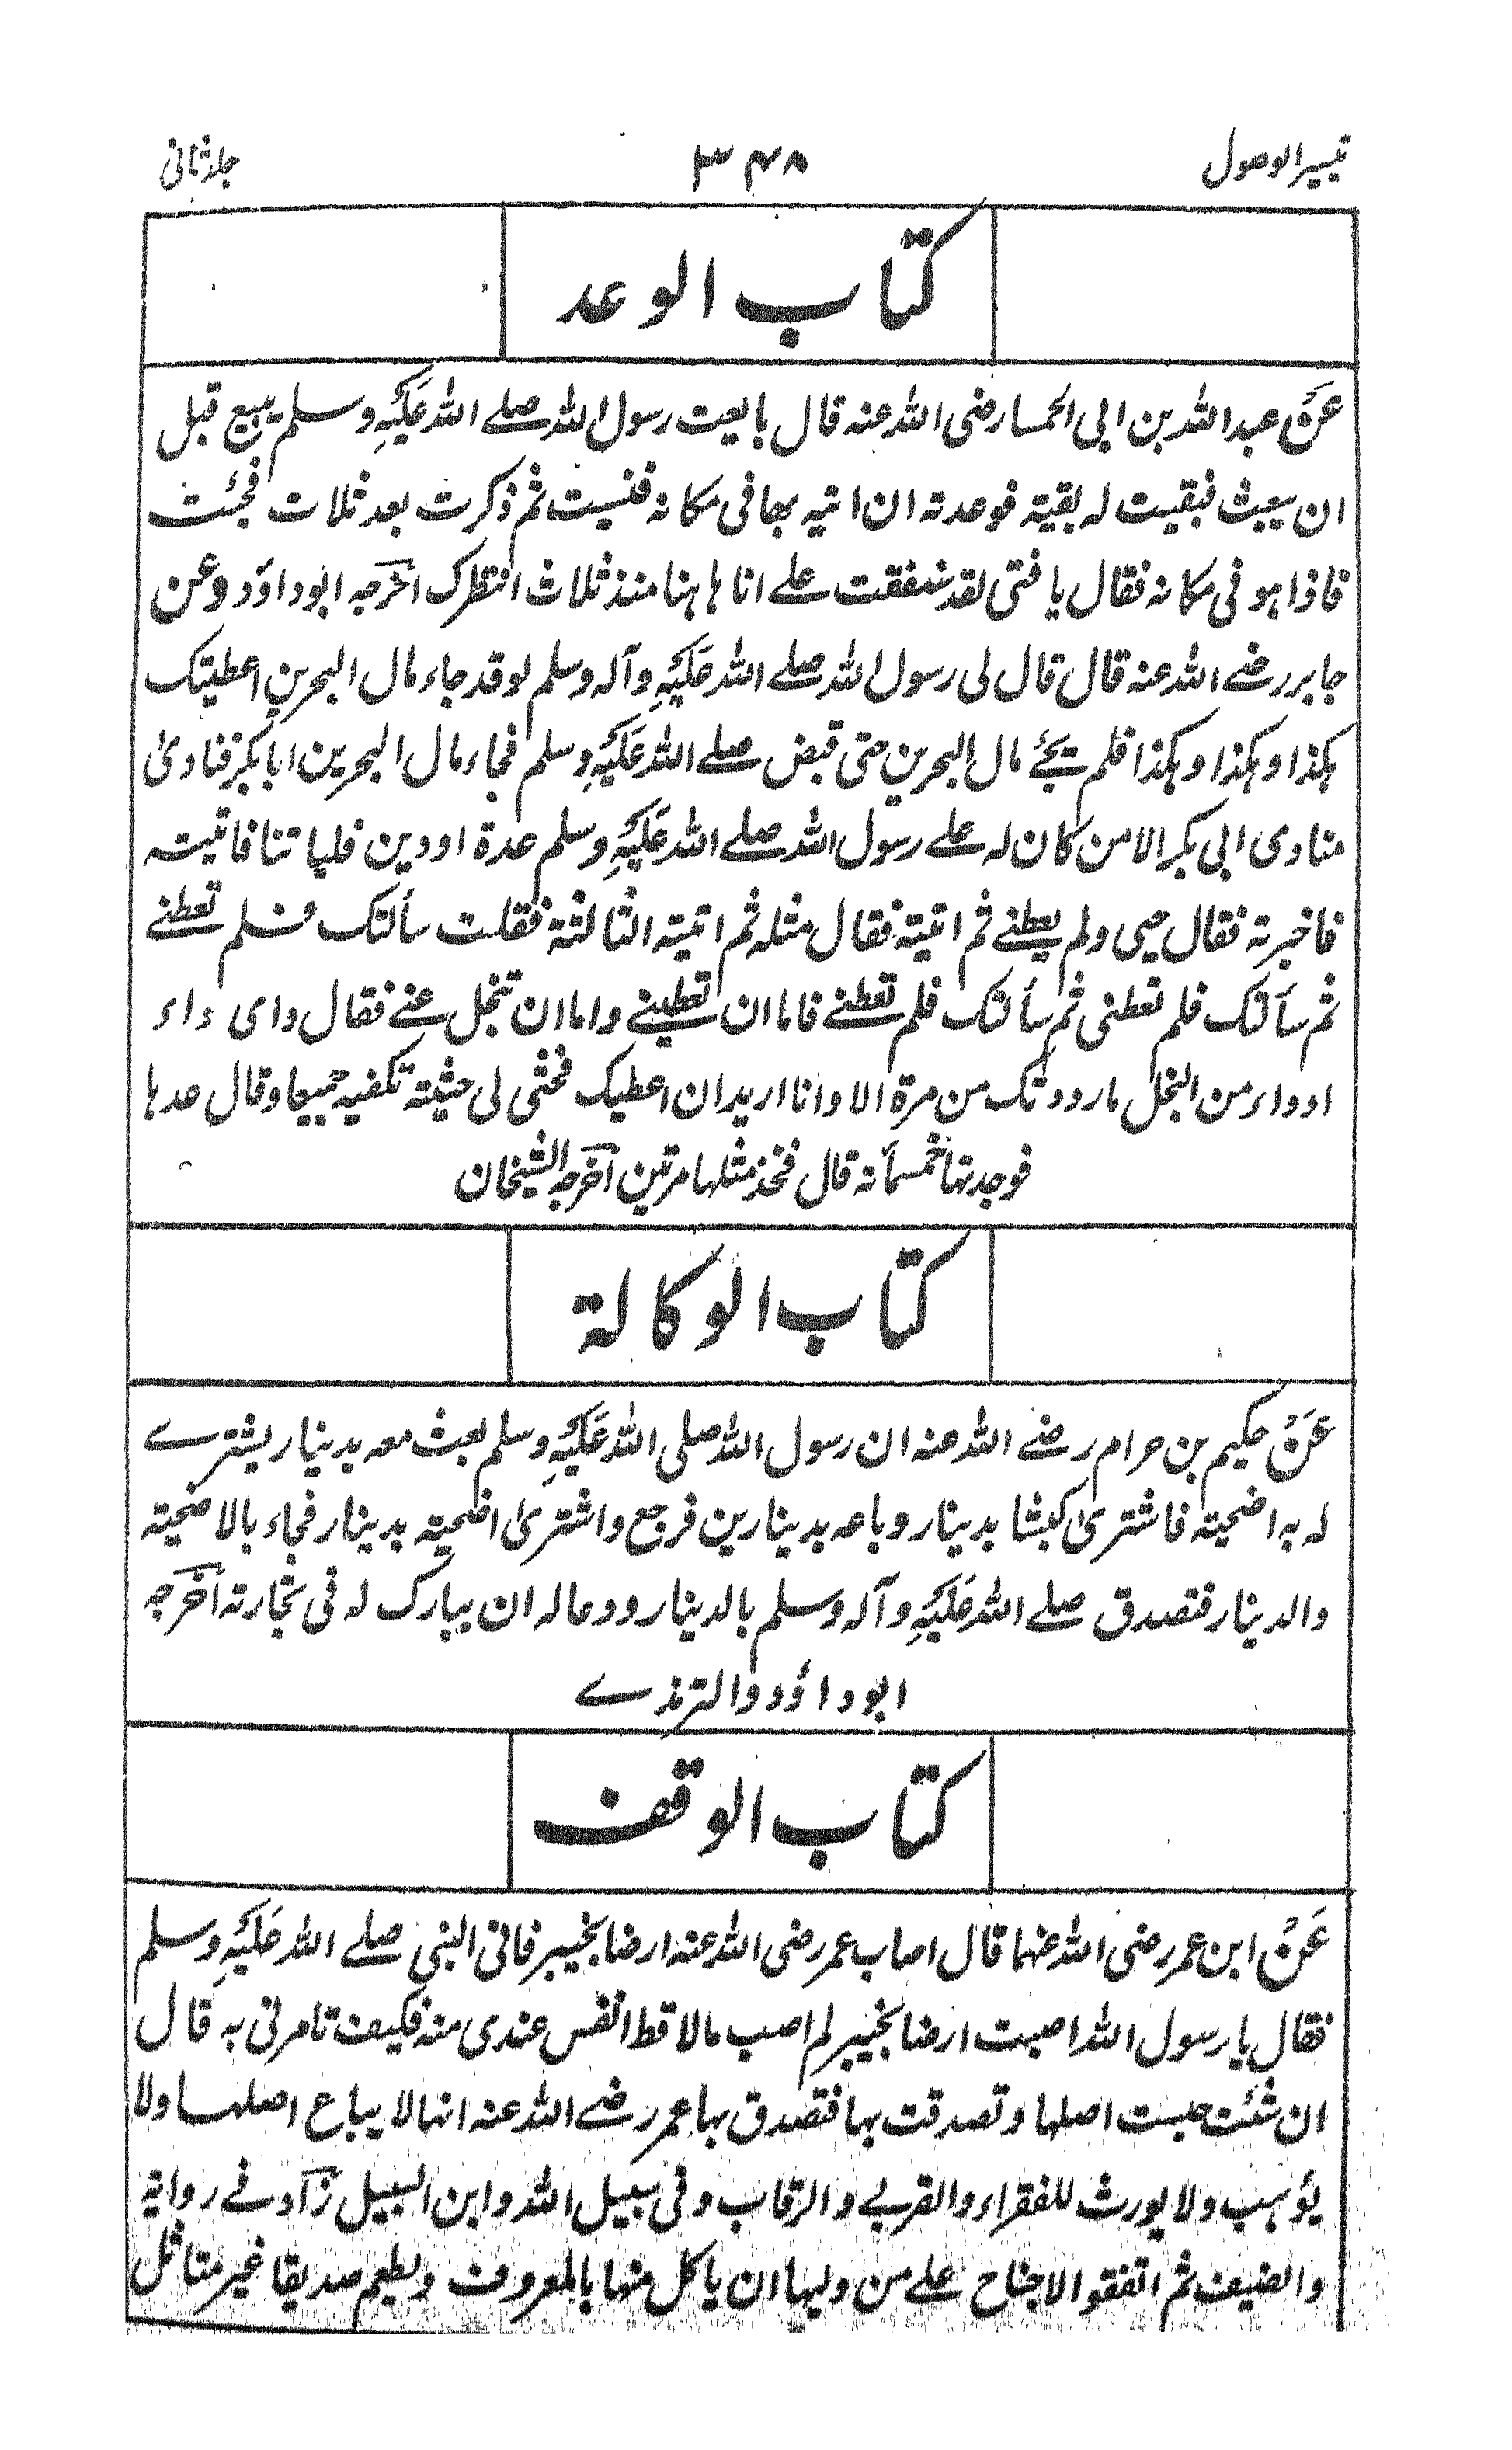 تيسير الوصول
٣٤٨
جلد ثانی
كتاب الوعد
عن عبد الله بن ابى الحمسا رضى الله عنه قال بايعت رسول الله صلے الله عليه وسلم ببيع قبل
ان يبعث فبقيت له بقية فوعدته ان اتيه بها فى مكانه فنسيت ثم ذكرت بعد ثلاث فجئت
فاذا هو فى مكانه فقال يا فتى لقد شققت علے انا هاهنا منذ ثلاث انتظرك اخرجه ابو داود وعن
جابر رضے الله عنه قال قال لى رسول الله صلے الله عليه وآله وسلم لو قد جاء مال البحرين اعطيتك
هكذا وهكذا وهكذا فلم يجئ مال البحرين حتى قبض صلے الله عليه وسلم فجاء مال البحرين ابا بكر فنادىٰ
منادى ابى بكر الا من كان له علے رسول الله صلے الله عليه وسلم عدة او دين فلياتنا فاتيته
فاخبرته فقال حيى ولم يعطنے ثم اتيته فقال مثله ثم اتيته الثالثة فقلت سألتك فلم تعطنے
ثم سألتك فلم تعطنى ثم سألتك فلم تعطنے فاما ان تعطينے واما ان تبخل عنے فقال واى داء
ادواء من البخل ما رددتك من مرة الا وانا اريد ان اعطيك فحثى لى حثيته تكفيه جميعا وقال عدها
فوجدتها خمسمأته قال فخذ مثلها مرتين اخرجه الشيخان
كتاب الوكالة
عن حكيم بن حرام رضے الله عنه ان رسول الله صلى الله عليه وسلم بعث معه بدينار يشترے
له به اضحيته فاشترىٰ كبشا بدينار وباعه بدينارين فرجع واشترىٰ اضحيته بدينار فجاء بالاضحيته
والدينار فتصدق صلے الله عليه وآله وسلم بالدينار ودعا له ان يبارك له فى تجارته اخرجه
ابو داؤد والترمذے
كتاب الوقف
عن ابن عمر رضى الله عنهما قال اصاب عمر رضى الله عنه ارضا بخيبر فاتى النبي صلے الله عليه وسلم
فقال يا رسول الله اصبت ارضا بخيبر لم اصب مالا قط انفس عندى منه فكيف تامرنى به قال
ان شئت حبست اصلها وتصدقت بها فتصدق بها عمر رضے الله عنه انها لا يباع اصلها ولا
يؤهب ولا يورث للفقراء والقربے والرقاب وفى سبيل الله وابن السبيل زاد فے رواية
والضيف ثم اتفقوا لاجناح علے من وليها ان ياكل منها بالمعروف ويطعم صديقا غير متاثل